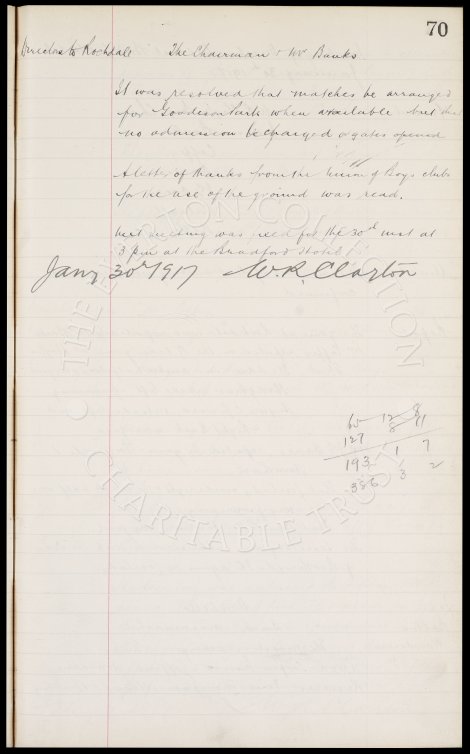 70
Directors to Rochdale The Chairman & Mr Banks
It was resolved that matches be arranged
for Goodison Park when available but that
no admission be charged or gates opened
A letter of thanks from the Union of Boys clubs
for the use of the ground was read.
Next meeting was fixed for the 30th inst at
3 pm at the Bradford Hotel
Jany 30th 1917 W.R. Clayton
THE EVERTON COLLECTION
CHARITABLE TRUST
127
193 1 7
336 3 2